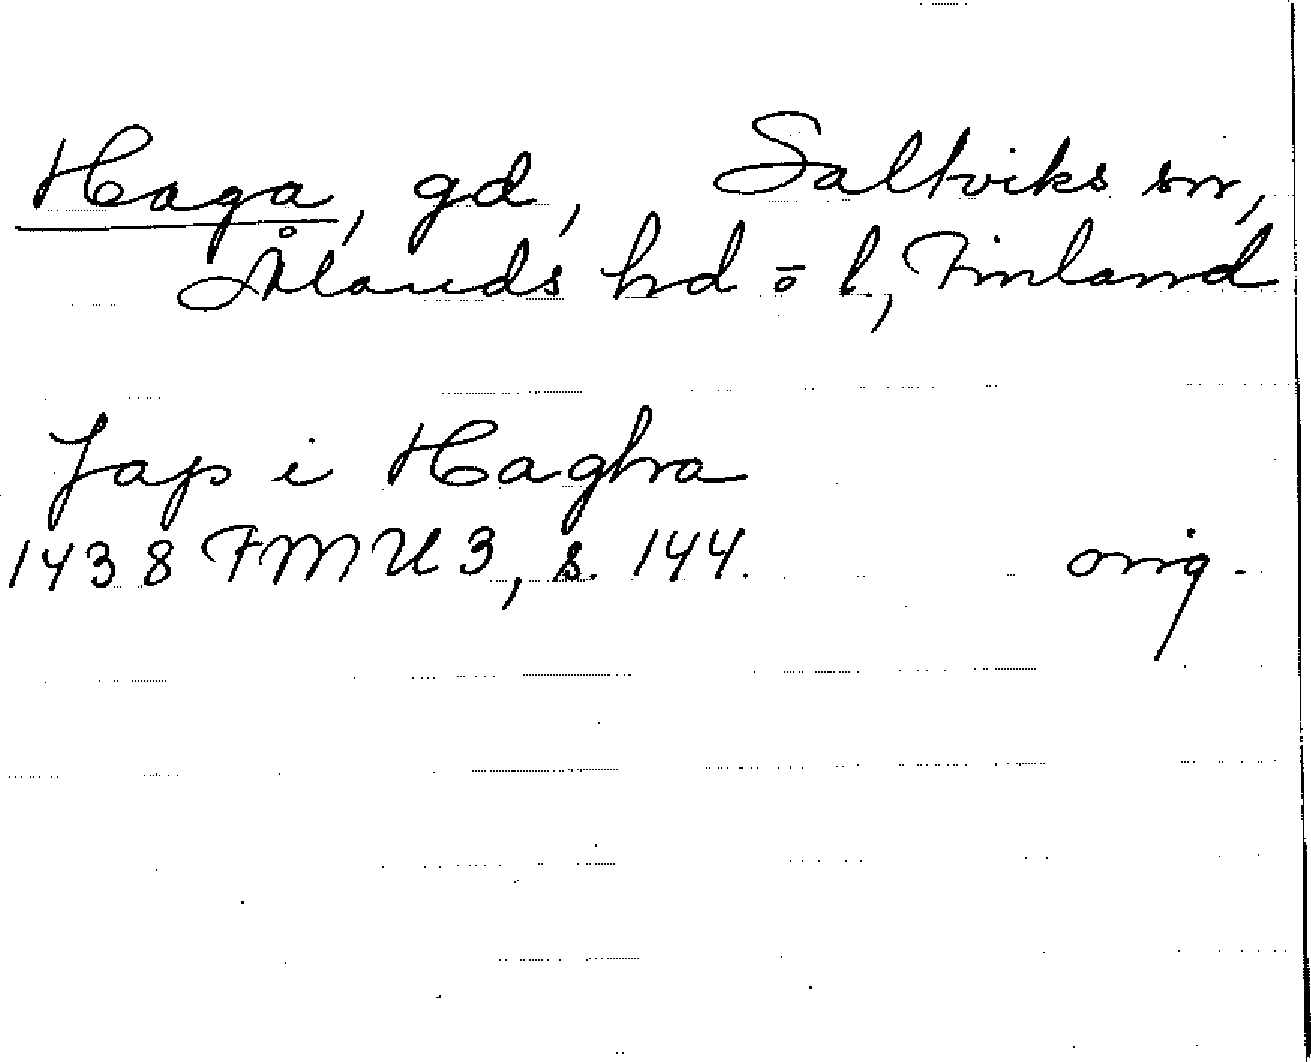 Haga, gd, Saltviks sn,
Ålands hd = l, Finland
Jap i Haghra
1438 FMU 3, s. 144. orig.